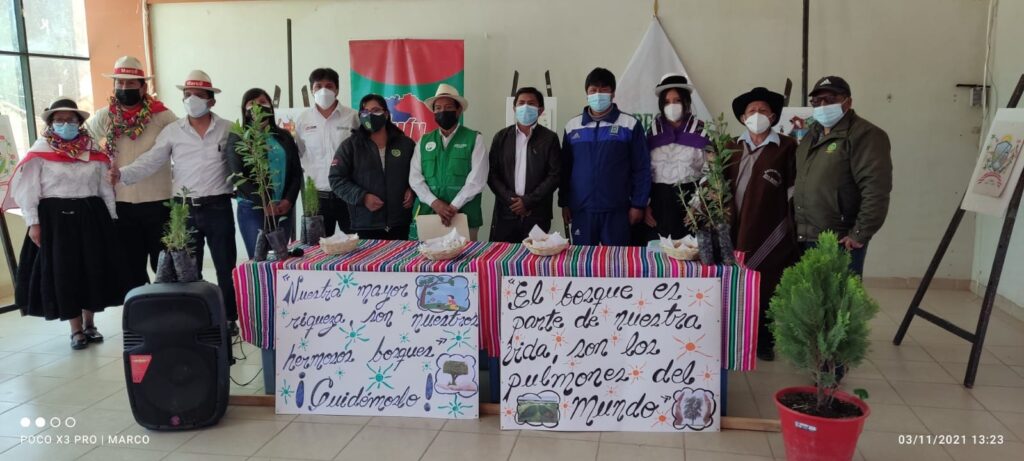 Marcó
Marcó
"Nuestra mayor
riqueza, son nuestros
hermosos bosques
¡Cuidémoslo!
"El bosque es
parte de nuestra
vida, son los
pulmones del
Mundo"
POCO X3 PRO | MARCO
03/11/2021 13:23